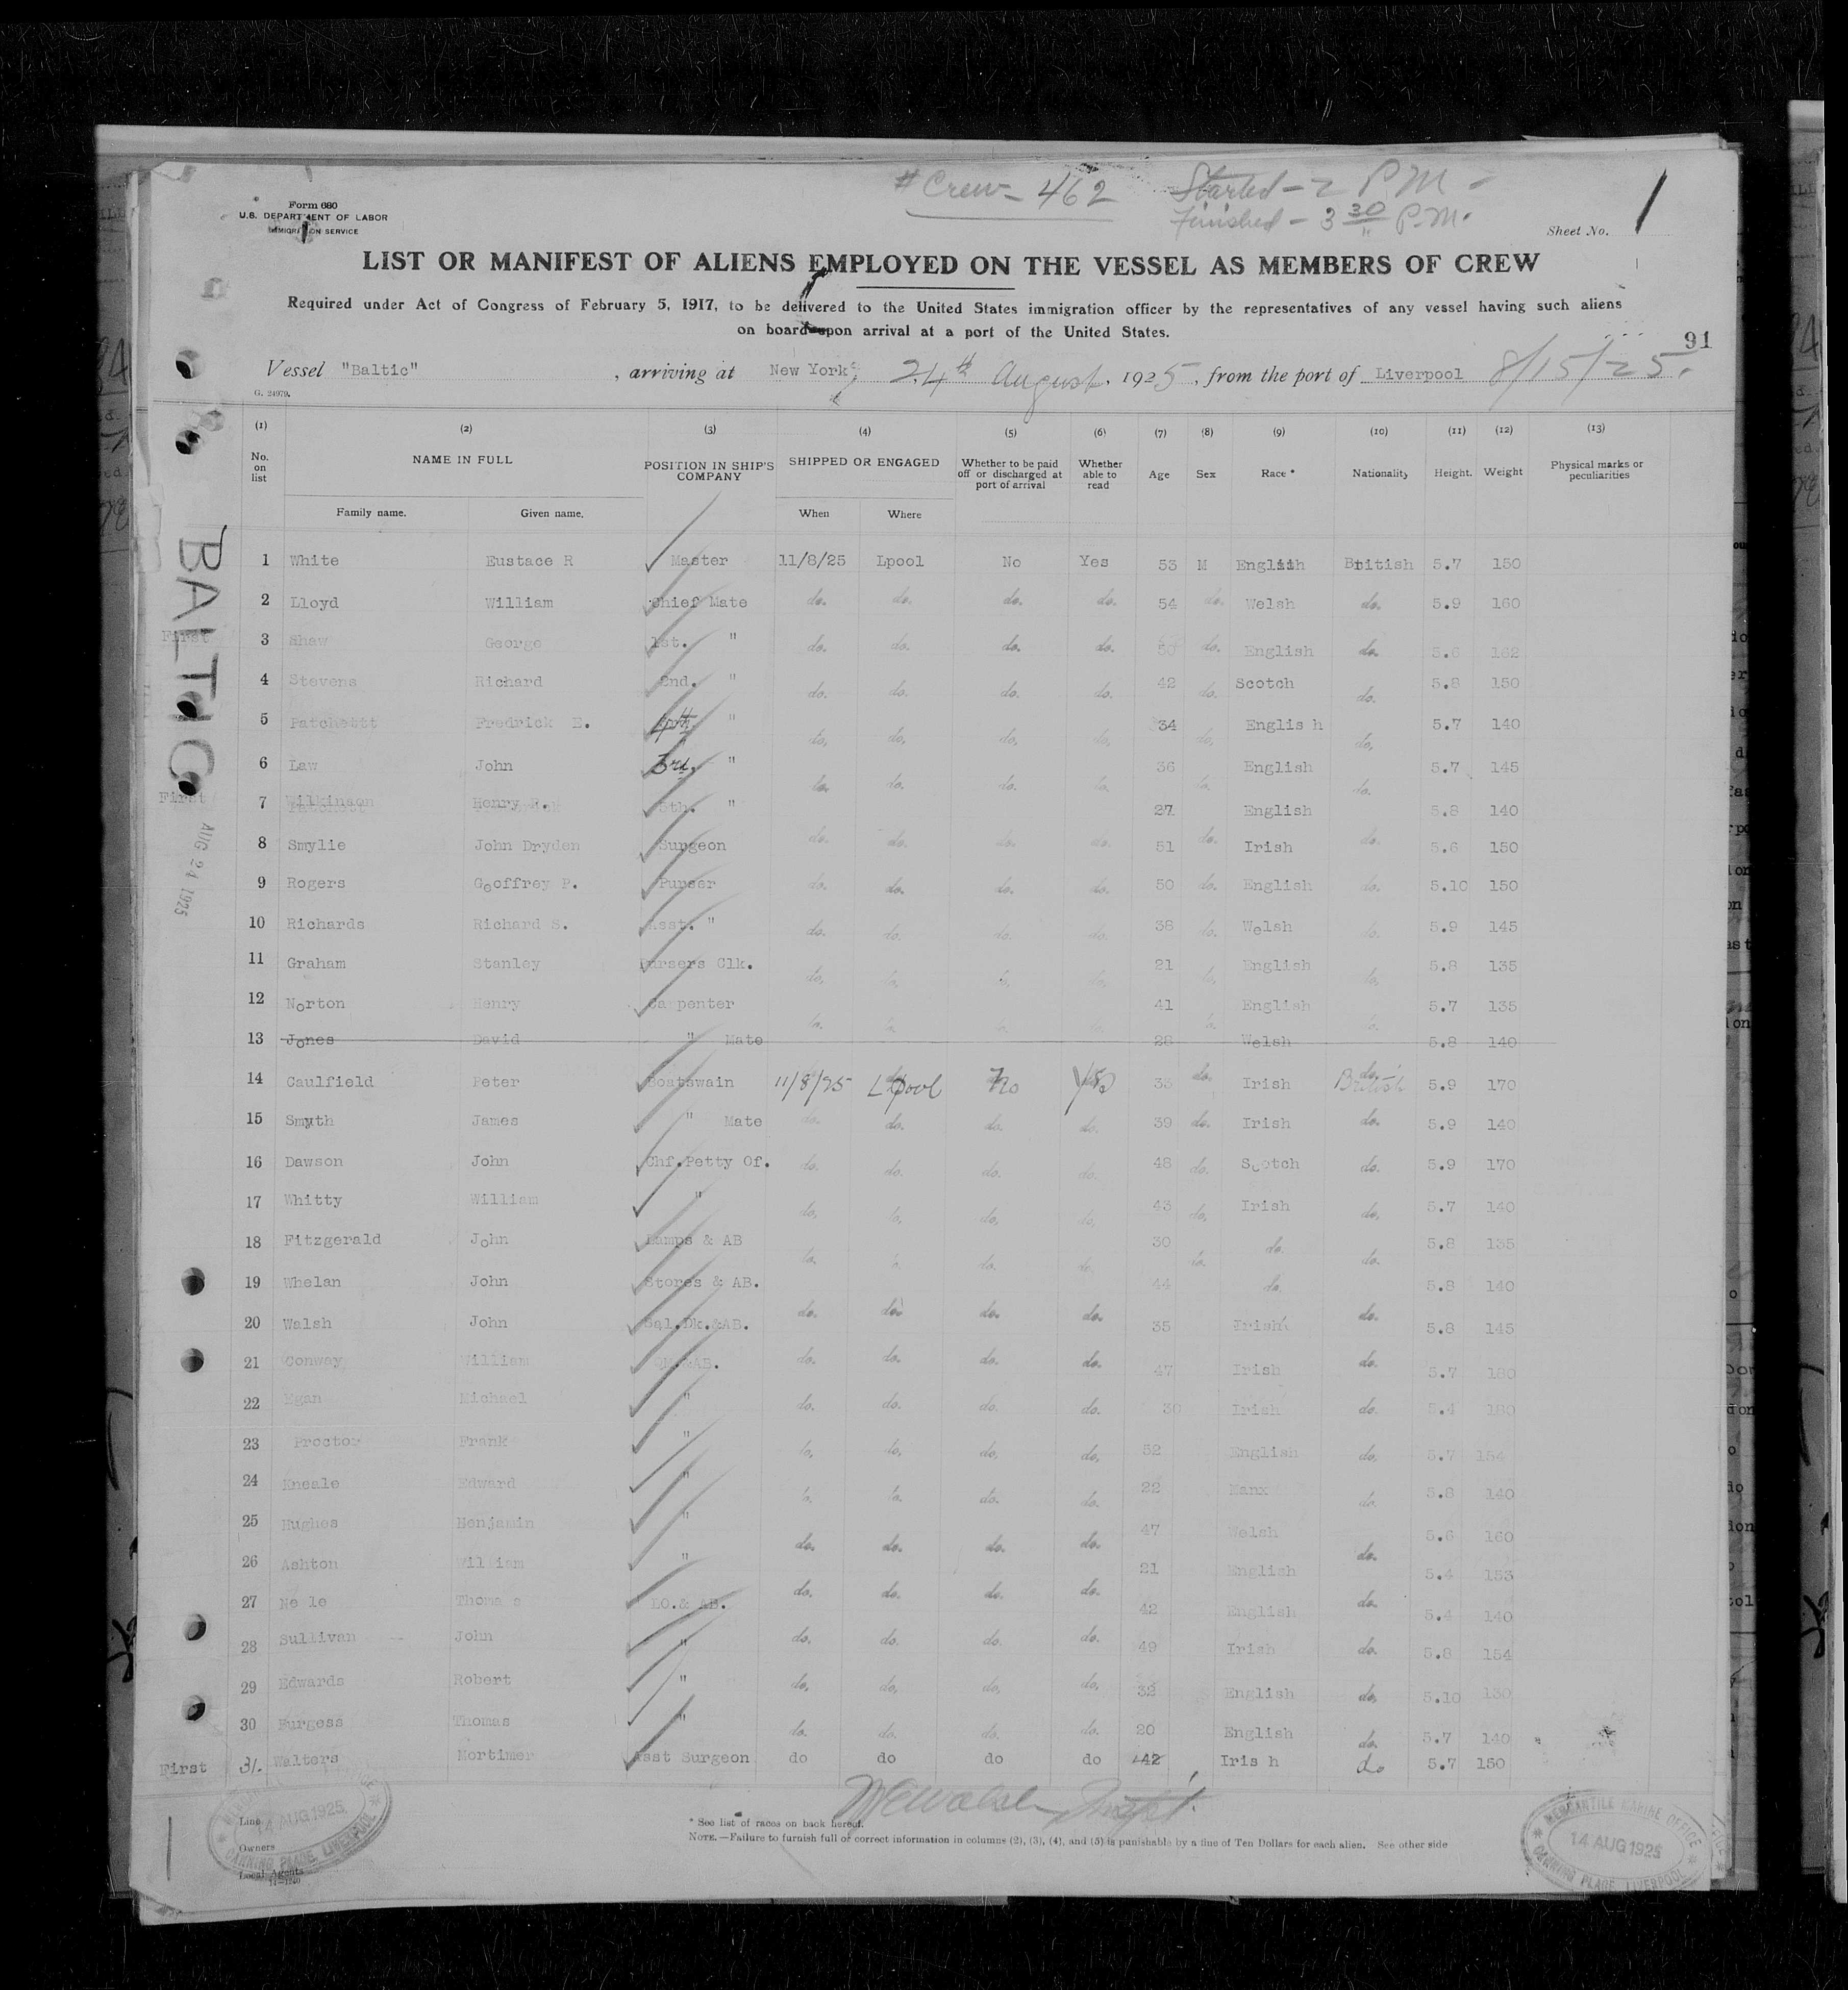 # Crew - 462 Started - 2 P.M. -
Finished - 3 30 P.M.
Form 680
U.S. DEPARTMENT OF LABOR
IMMIGRATION SERVICE
Sheet No. 1
LIST OR MANIFEST OF ALIENS EMPLOYED ON THE VESSEL AS MEMBERS OF CREW
Required under Act of Congress of February 5, 1917, to be delivered to the United States immigration officer by the representatives of any vessel having such aliens
on board upon arrival at a port of the United States.
91
Vessel "Baltic", arriving at New York, 24th August, 1925, from the port of Liverpool 8/15/25.
G. 24979.
(1) (2) (3) (4) (5) (6) (7) (8) (9) (10) (11) (12) (13)
No. on list NAME IN FULL POSITION IN SHIP'S COMPANY SHIPPED OR ENGAGED Whether to be paid off or discharged at port of arrival Whether able to read Age Sex Race * Nationality Height. Weight Physical marks or peculiarities
Family name. Given name. When Where
BALTIC
1 White Eustace R Master 11/8/25 Lpool No Yes 53 M English British 5.7 150
2 Lloyd William Chief Mate do. do. do. do. 54 do. Welsh do. 5.9 160
First 3 Shaw George 1st. " do. do. do. do. 50 do. English do. 5.6 162
4 Stevens Richard 2nd. " do. do. do. do. 42 do. Scotch do. 5.8 150
5 Patchettt Fredrick E. 4th " do. do. do. do. 34 do. Englis h do. 5.7 140
6 Law John 3rd. " do. do. do. do. 36 do. English do. 5.7 145
First 7 Wilkinson Henry R. 5th. " 27 English 5.8 140
AUG 24 1925
8 Smylie John Dryden Surgeon do. do. do. do. 51 do. Irish do. 5.6 150
9 Rogers Geoffrey P. Purser do. do. do. do. 50 do. English do. 5.10 150
10 Richards Richard S. Asst. " do. do. do. do. 38 do. Welsh do. 5.9 145
11 Graham Stanley Pursers Clk. do. do. do. do. 21 do. English do. 5.8 135
12 Norton Henry Carpenter do. do. do. do. 41 do. English do. 5.7 135
13 Jones David " Mate 28 Welsh 5.8 140
14 Caulfield Peter Boatswain 11/8/25 Lpool No Yes 33 do. Irish British 5.9 170
15 Smyth James " Mate do. do. do. do. 39 do. Irish do. 5.9 140
16 Dawson John Chf.Petty Of. do. do. do. do. 48 do. Scotch do. 5.9 170
17 Whitty William " do. do. do. do. 43 do. Irish do. 5.7 140
18 Fitzgerald John Lamps & AB do. do. do. do. 30 do. do. do. 5.8 135
19 Whelan John Stores & AB. 44 do. 5.8 140
20 Walsh John Sal.Dk.&AB. do. do. do. do. 35 Irish do. 5.8 145
21 Conway William QM.&AB. do. do. do. do. 47 Irish do. 5.7 180
22 Egan Michael " do. do. do. do. 30 Irish do. 5.4 180
23 Proctor Frank " do. do. do. do. 52 English do. 5.7 154
24 Kneale Edward " do. do. do. do. 22 Manx do. 5.8 140
25 Hughes Benjamin " do. do. do. do. 47 Welsh do. 5.6 160
26 Ashton William " do. do. do. do. 21 English do. 5.4 153
27 Ne le Thoma s LO.& AB. do. do. do. do. 42 English do. 5.4 140
28 Sullivan John " do. do. do. do. 49 Irish do. 5.8 154
29 Edwards Robert " do. do. do. do. 32 English do. 5.10 130
30 Burgess Thomas " do. do. do. do. 20 English do. 5.7 140
First 31. Walters Mortimer Asst Surgeon do do do do 42 Iris h do 5.7 150
Line
Owners
Local Agents
14 AUG 1925
CANNING PLACE, LIVERPOOL
* See list of races on back hereof.
NOTE.—Failure to furnish full or correct information in columns (2), (3), (4), and (5) is punishable by a fine of Ten Dollars for each alien. See other side
MERCANTILE MARINE OFFICE
14 AUG 1925
CANNING PLACE, LIVERPOOL